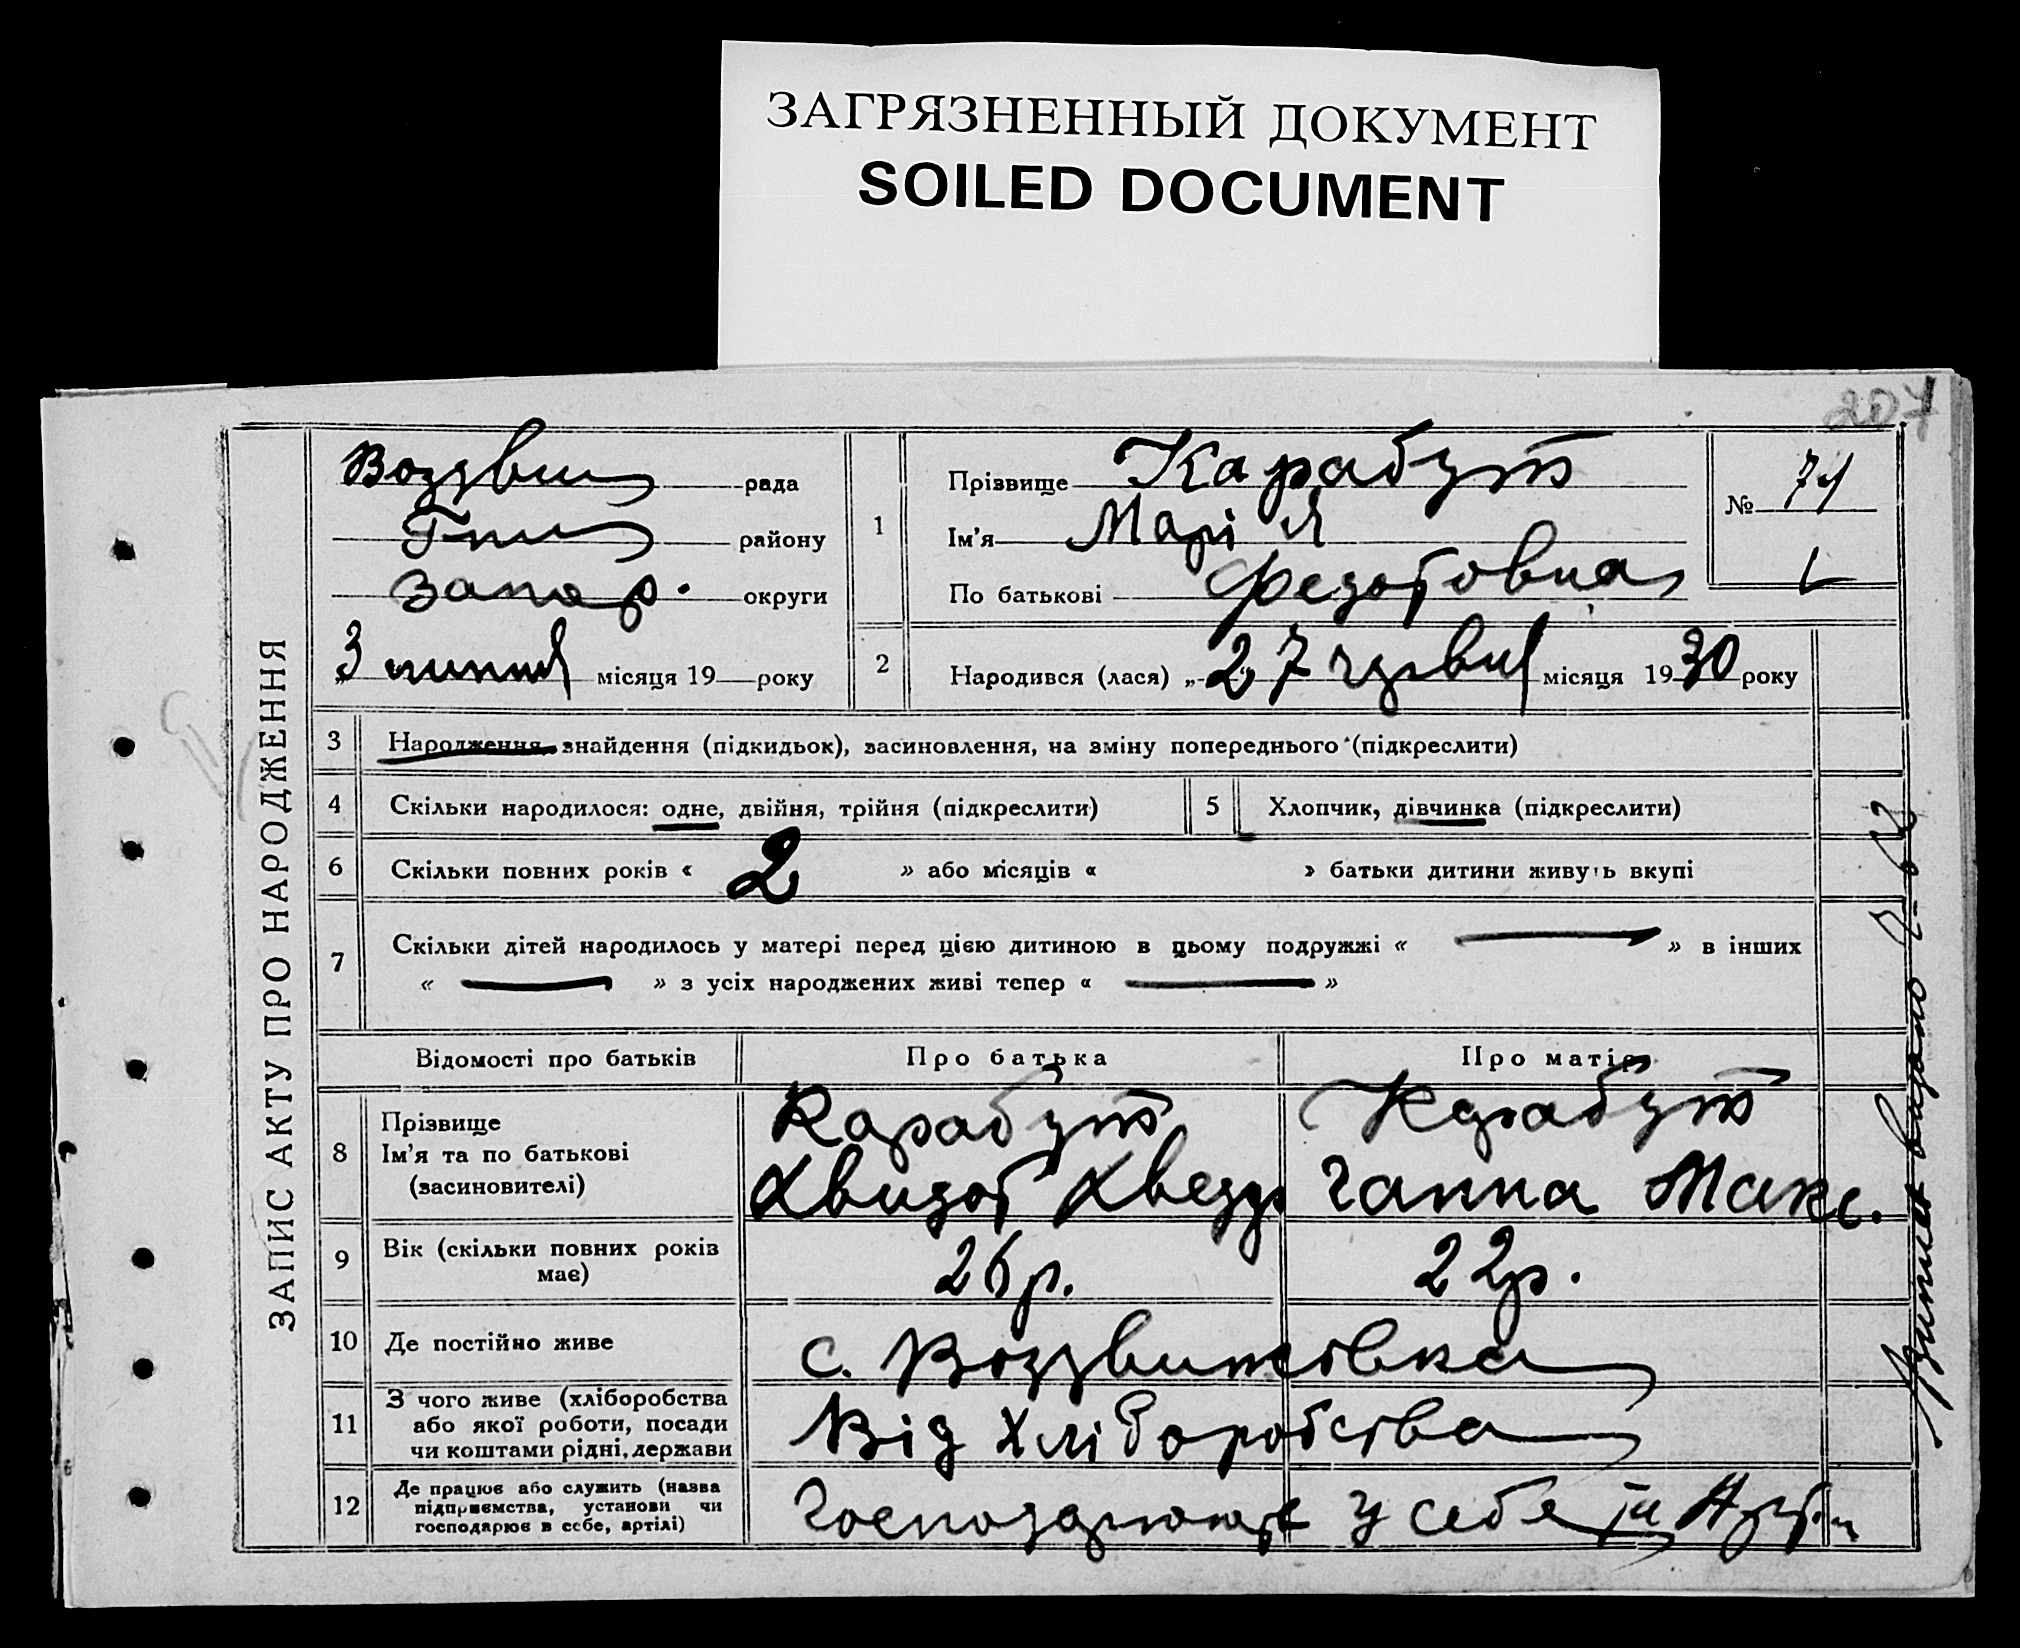 ЗАГРЯЗНЕННЫЙ ДОКУМЕНТ
SOILED DOCUMENT
207
ЗАПИС АКТУ ПРО НАРОДЖЕННЯ
Воздвиж рада
району
Запор. округи
„3 липня місяця 19 року
1
Прізвище Карабут
Ім'я Марія
По батькові Федотовна
№ 71
2
Народився (лася) „27 червня місяця 1930 року
3 Народження, знайдення (підкидьок), засиновлення, на зміну попереднього (підкреслити)
4 Скільки народилося: одне, двійня, трійня (підкреслити)
5 Хлопчик, дівчинка (підкреслити)
6 Скільки повних років « 2 » або місяців « » батьки дитини живуть вкупі
7 Скільки дітей народилось у матері перед цією дитиною в цьому подружжі « — » в інших
« — » з усіх народжених живі тепер « — »
Відомості про батьків Про батька Про матір
8 Прізвище
Ім'я та по батькові
(засиновителі)
Карабут
Хвидот Хведор
Карабут
Ганна Макс.
9 Вік (скільки повних років
має)
26 р.
22 р.
10 Де постійно живе
с. Воздвижовка
11 З чого живе (хліборобства
або якої роботи, посади
чи коштами рідні, держави
Від хліборобства
12 Де працює або служить (назва
підприємства, установи чи
господарює в себе, артілі)
Господарюють у себе
видано